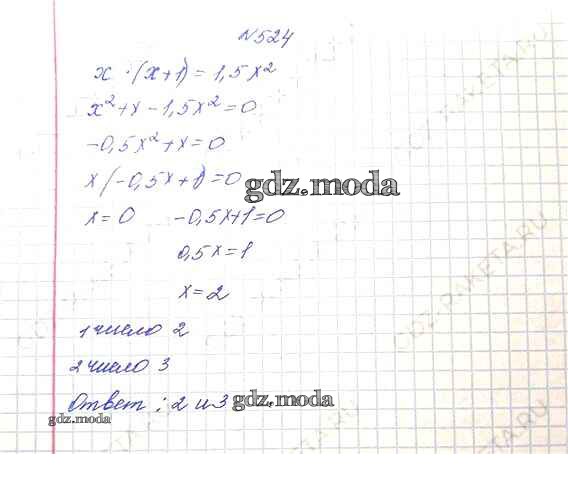 N524
x · (x+1) = 1,5x²
x²+x-1,5x²=0
-0,5x²+x=0
x(-0,5x+1)=0
gdz.moda
x=0 -0,5x+1=0
0,5x=1
x=2
1 число 2
2 число 3
Ответ: 2 и 3
gdz.moda
gdz.moda
GDZ-RAKETA.RU